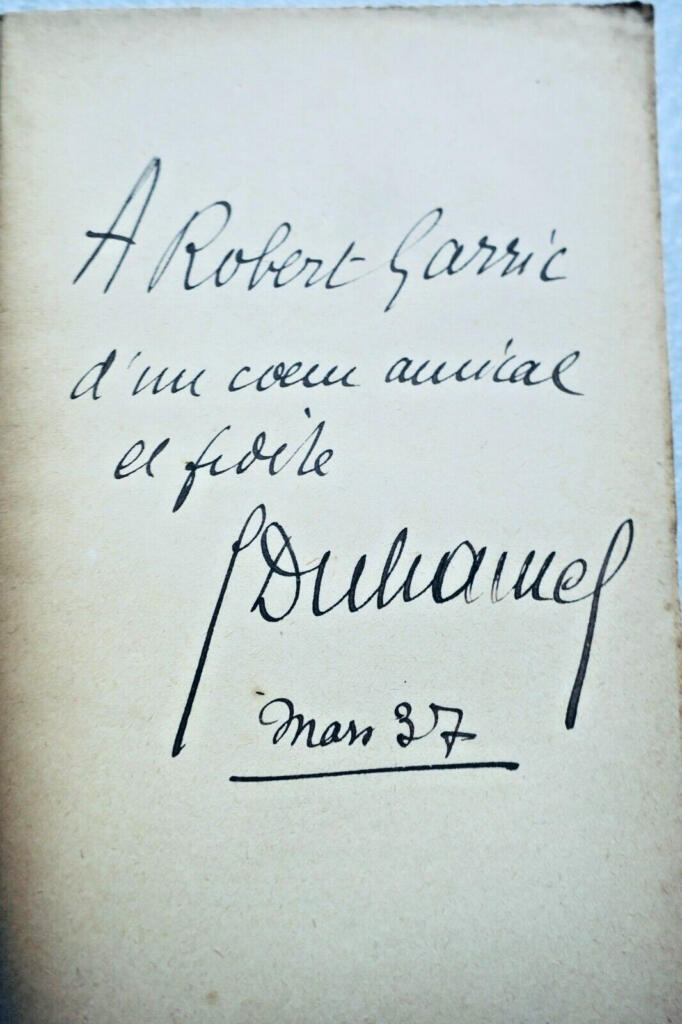 A Robert Garric
d'un coeur amical
et fidèle
GDuhamel
Mars 37